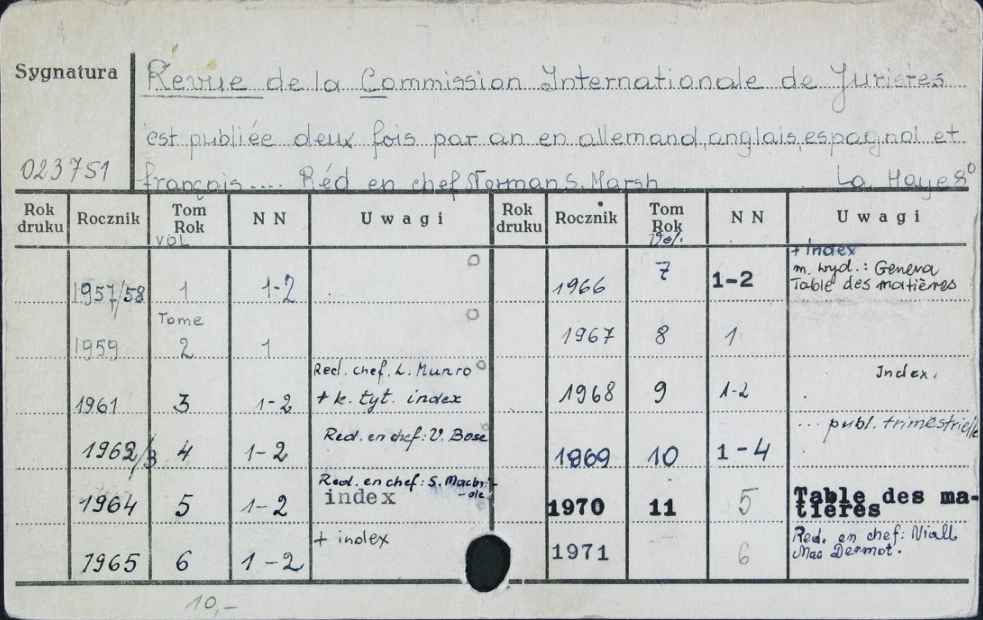 Sygnatura
Revue de la Commission Internationale de Juristes
est publiée deux fois par an en allemand, anglais, espagnol et
023751
français.... Réd en chef Norman S. Marsh La Haye 8°
Rok druku Rocznik Tom Rok N N Uwagi Rok druku Rocznik Tom Rok N N Uwagi
vol. vol.
1957/58 1 1-2
1966 7 1-2 + Index
m. wyd.: Geneva
Table des matières
Tome
1959 2 1
1967 8 1
1961 3 1-2 Red. chef. L. Munro
+ k. tyt. index
1968 9 1-2 Index.
1962/3 4 1-2 Red. en chef: V. Bose
1969 10 1-4 ... publ. trimestrielle
1964 5 1-2 Red. en chef: S. Macbri-
-de
index
1970 11 5 Table des ma-
tières
1965 6 1-2 + index
1971 6 Red. en chef: Niall
Mac Dermot.
10,-